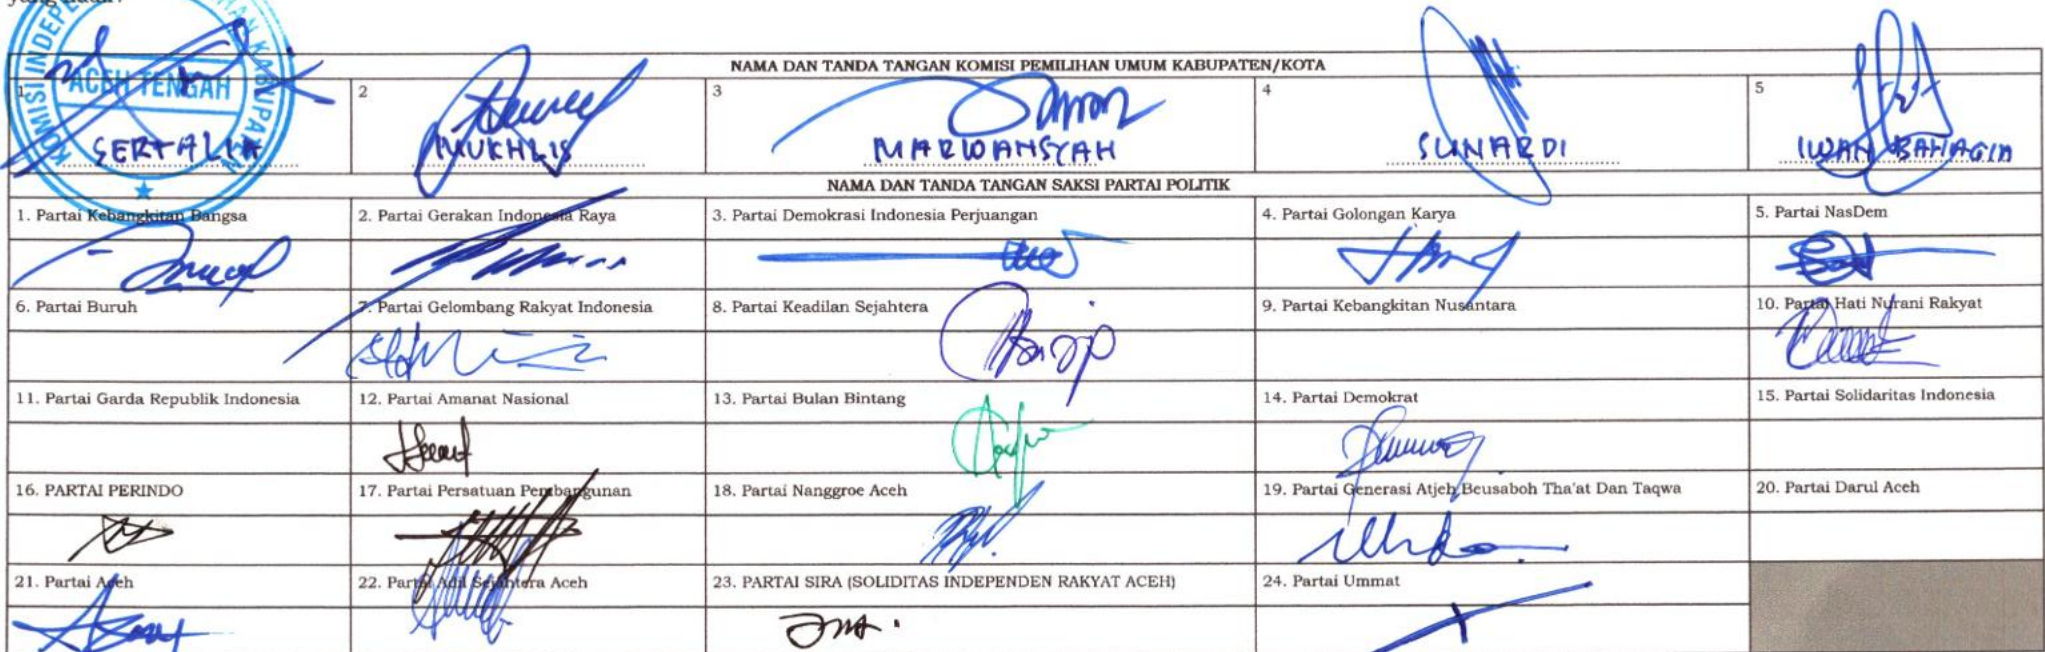 NAMA DAN TANDA TANGAN KOMISI PEMILIHAN UMUM KABUPATEN/KOTA
1 2 3 4 5
ACEH TENGAH
SERTALIA MUKHLIS MARWANSYAH SUNARDI IWAN BAHAGIA
NAMA DAN TANDA TANGAN SAKSI PARTAI POLITIK
1. Partai Kebangkitan Bangsa 2. Partai Gerakan Indonesia Raya 3. Partai Demokrasi Indonesia Perjuangan 4. Partai Golongan Karya 5. Partai NasDem
6. Partai Buruh 7. Partai Gelombang Rakyat Indonesia 8. Partai Keadilan Sejahtera 9. Partai Kebangkitan Nusantara 10. Partai Hati Nurani Rakyat
11. Partai Garda Republik Indonesia 12. Partai Amanat Nasional 13. Partai Bulan Bintang 14. Partai Demokrat 15. Partai Solidaritas Indonesia
16. PARTAI PERINDO 17. Partai Persatuan Pembangunan 18. Partai Nanggroe Aceh 19. Partai Generasi Atjeh Beusaboh Tha'at Dan Taqwa 20. Partai Darul Aceh
21. Partai Aceh 22. Partai Adil Sejahtera Aceh 23. PARTAI SIRA (SOLIDITAS INDEPENDEN RAKYAT ACEH) 24. Partai Ummat